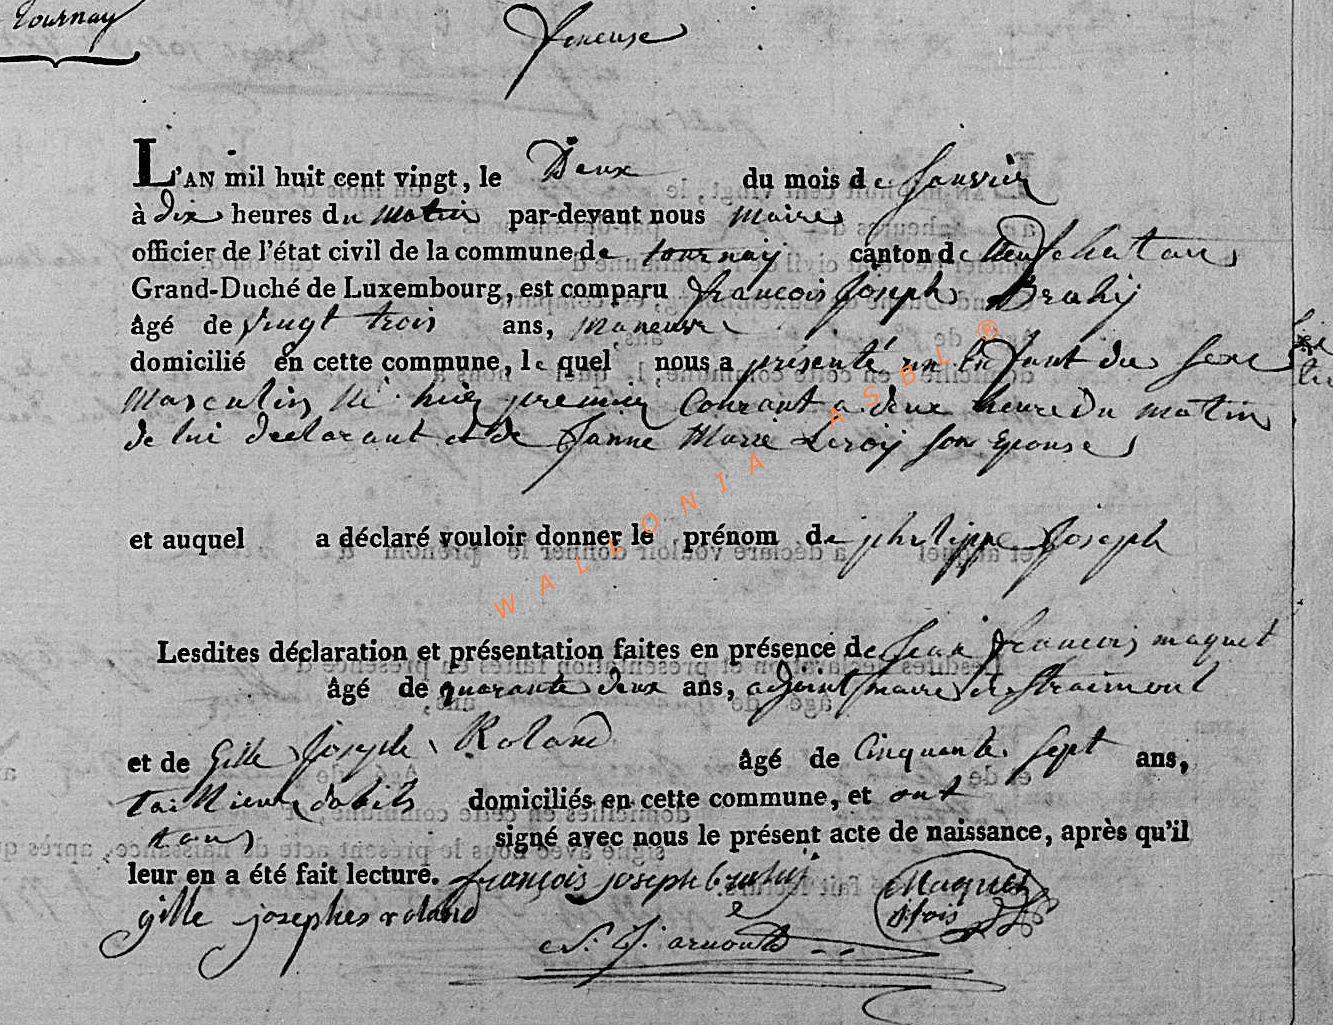 Tournay
L'AN mil huit cent vingt, le Deux du mois de Janvier
à dix heures du matin par-devant nous maire
officier de l'état civil de la commune de tournay canton de Neufchateau
Grand-Duché de Luxembourg, est comparu francois Joseph Brahy
âgé de vingt trois ans,
domicilié en cette commune, le quel nous a présenté un Enfant du sexe
masculin né hier premier Courant a deux heure du matin
de lui declarant et de Janne Marie Leroy son Epouse
et auquel a déclaré vouloir donner le prénom de philippe Joseph
Lesdites déclaration et présentation faites en présence de Jean francois maquet
âgé de quarante deux ans, adjoint maire de straimont
et de Gille Joseph Roland âgé de Cinquante sept ans,
taillieur dabits domiciliés en cette commune, et ont
tous signé avec nous le présent acte de naissance, après qu'il
leur en a été fait lecture. françois joseph brahy Maquet
gille josephes roland
J. arnould
WALLONIA ASBL ®